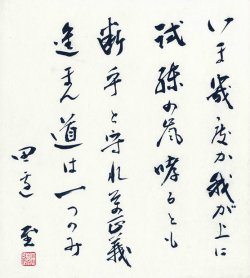 いま幾度か我が上に
試練の嵐哮るとも
断乎と守れその正義
進まん道は一つのみ
田辺